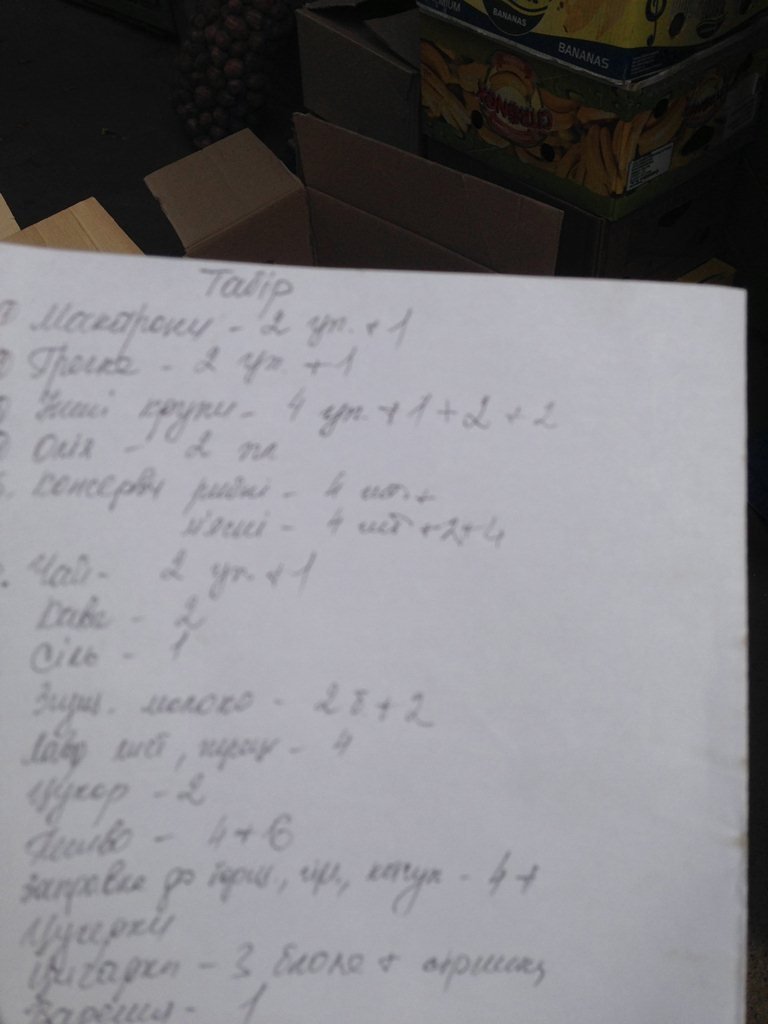 PREMIUM
BANANAS
BANANAS
Табір
Макарони - 2 уп. + 1
Гречка - 2 уп. + 1
Інші крупи - 4 уп. + 1 + 2 + 2
Олія - 2 пл
5. Консерви рибні - 4 шт. +
м'ясні - 4 шт + 2 + 4
Чай - 2 уп. + 1
Кава - 2
Сіль - 1
Згущ. молоко - 2 б + 2
Лавр лист, перець - 4
Цукор - 2
Печиво - 4 + 6
Заправка до борщ., гір., кетчуп - 4 +
Цукерки
Цигарки - 3 блоки +
Варення - 1